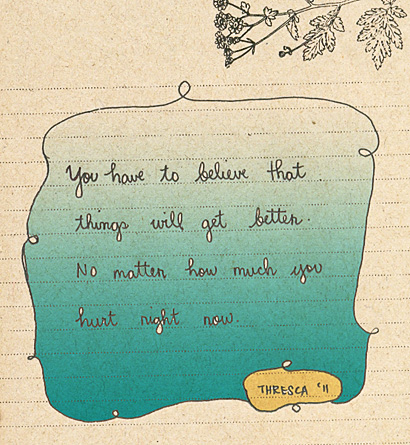 You have to believe that
things will get better.
No matter how much you
hurt right now.
THRESCA '11